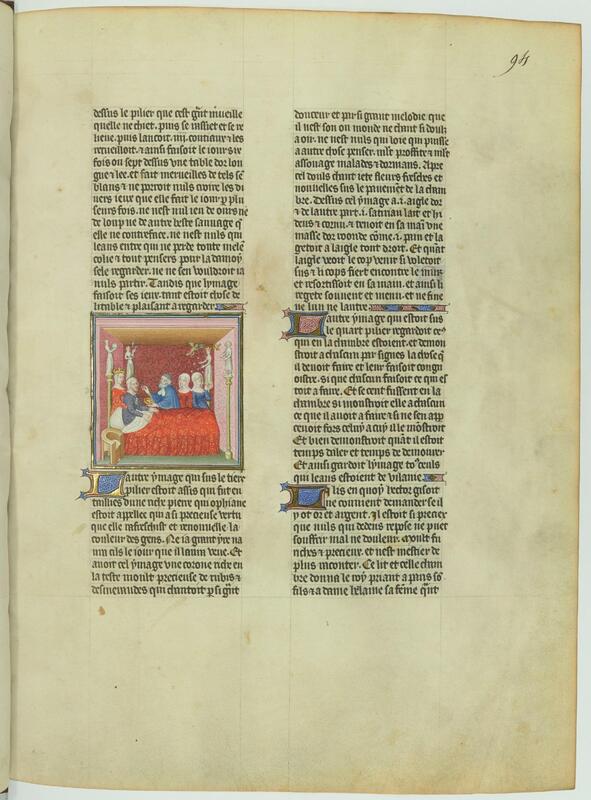 94
dessus le pilier que cest grant mueille
quelle ne chiet. puis se rassiet et se re
lieue. puis lancoit .iiij. coutiaux et les
recueilloit. et ainsi faisoit le iour six
fois ou sept dessus vne table dor lon
gue et lee. et fait merueilles de tels sem
blans et ne porroit nuls croire les di
uers ieux que elle fait le iour par plu
seurs fois. ne nest nul ieu de ours ne
de loup ne de autre beste sauuage que
elle ne contreface. ne nest nuls qui
leans entre qui ne perde toute melen
colie et tout penser pour la damoi
selle regarder. ne ne sen vouldroit ia
nuls partir. Tandis que lymage
faisoit ses ieux tant estoit chose de
litable et plaisant a regarder
Lautre ymage qui sus le tiers
pilier estoit assis qui fut en
taillies dune riche pierre qui ophiane
estoit appellee qui a si precieuse vertu
que elle rafreschist et renouuelle la
couleur des gens. Ne ia grant yre na
ura cils le iour que il laura veue. Et
auoit cel ymage vne corone riche en
la teste moult precieuse de rubis et
desmeraudes qui chantoit par si grant
douceur et par si grant melodie que
il nest son ou monde ne chant si doulz
a oir. ne nest nuls qui loie qui puisse
a autre chose penser. moult proffite et moult
assouage malades et dormans. Apres
cel doulz chant iete fleurs fresches et
nouuelles sus le pauement de la cham
bre. Dessus cel ymage a .i. aigle dor
et de lautre part .i. satirau lait et hi
deus et cornu. et tenoit en sa main vne
masse dor roonde comme .i. pain et la
getoit a laigle tout droit. Et quant
laigle veoit le cop venir si voletoit
sus et li cops fiert encontre le mur
et resortissoit en sa main. et ainsi li
regete souuent et menu. et ne fine
ne lun ne lautre
Lautre ymage qui estoit sus
le quart pilier regardoit ceulx
qui en la chambre estoient. et demon
stroit a chascun par signes la chose que
il deuoit faire et leur faisoit congn
oistre. si que chascun faisoit ce qui es
toit a faire. Et se cent fussent en la
chambre si monstroit elle a chascun
ce que il auoit a faire et si ne sen apper
ceuoit fors celuy a cuy ille monstroit
Et bien demonstroit quant il estoit
temps daler et temps de demourer.
Et ainsi gardoit lymage tous ceuls
qui leans estoient de vilanie.
Li lis en quoy hector gisoit
ne conuient demander se il
y ot or et argent. Il estoit si precieux
que nuls qui dedens repose ne puet
souffrir mal ne douleur. Moult fu
riches et precieux. et nest mestier de
plus raconter. Ce lit et celle cham
bre donna le roy priant a paris son
fils et a dame helaine sa feme quant